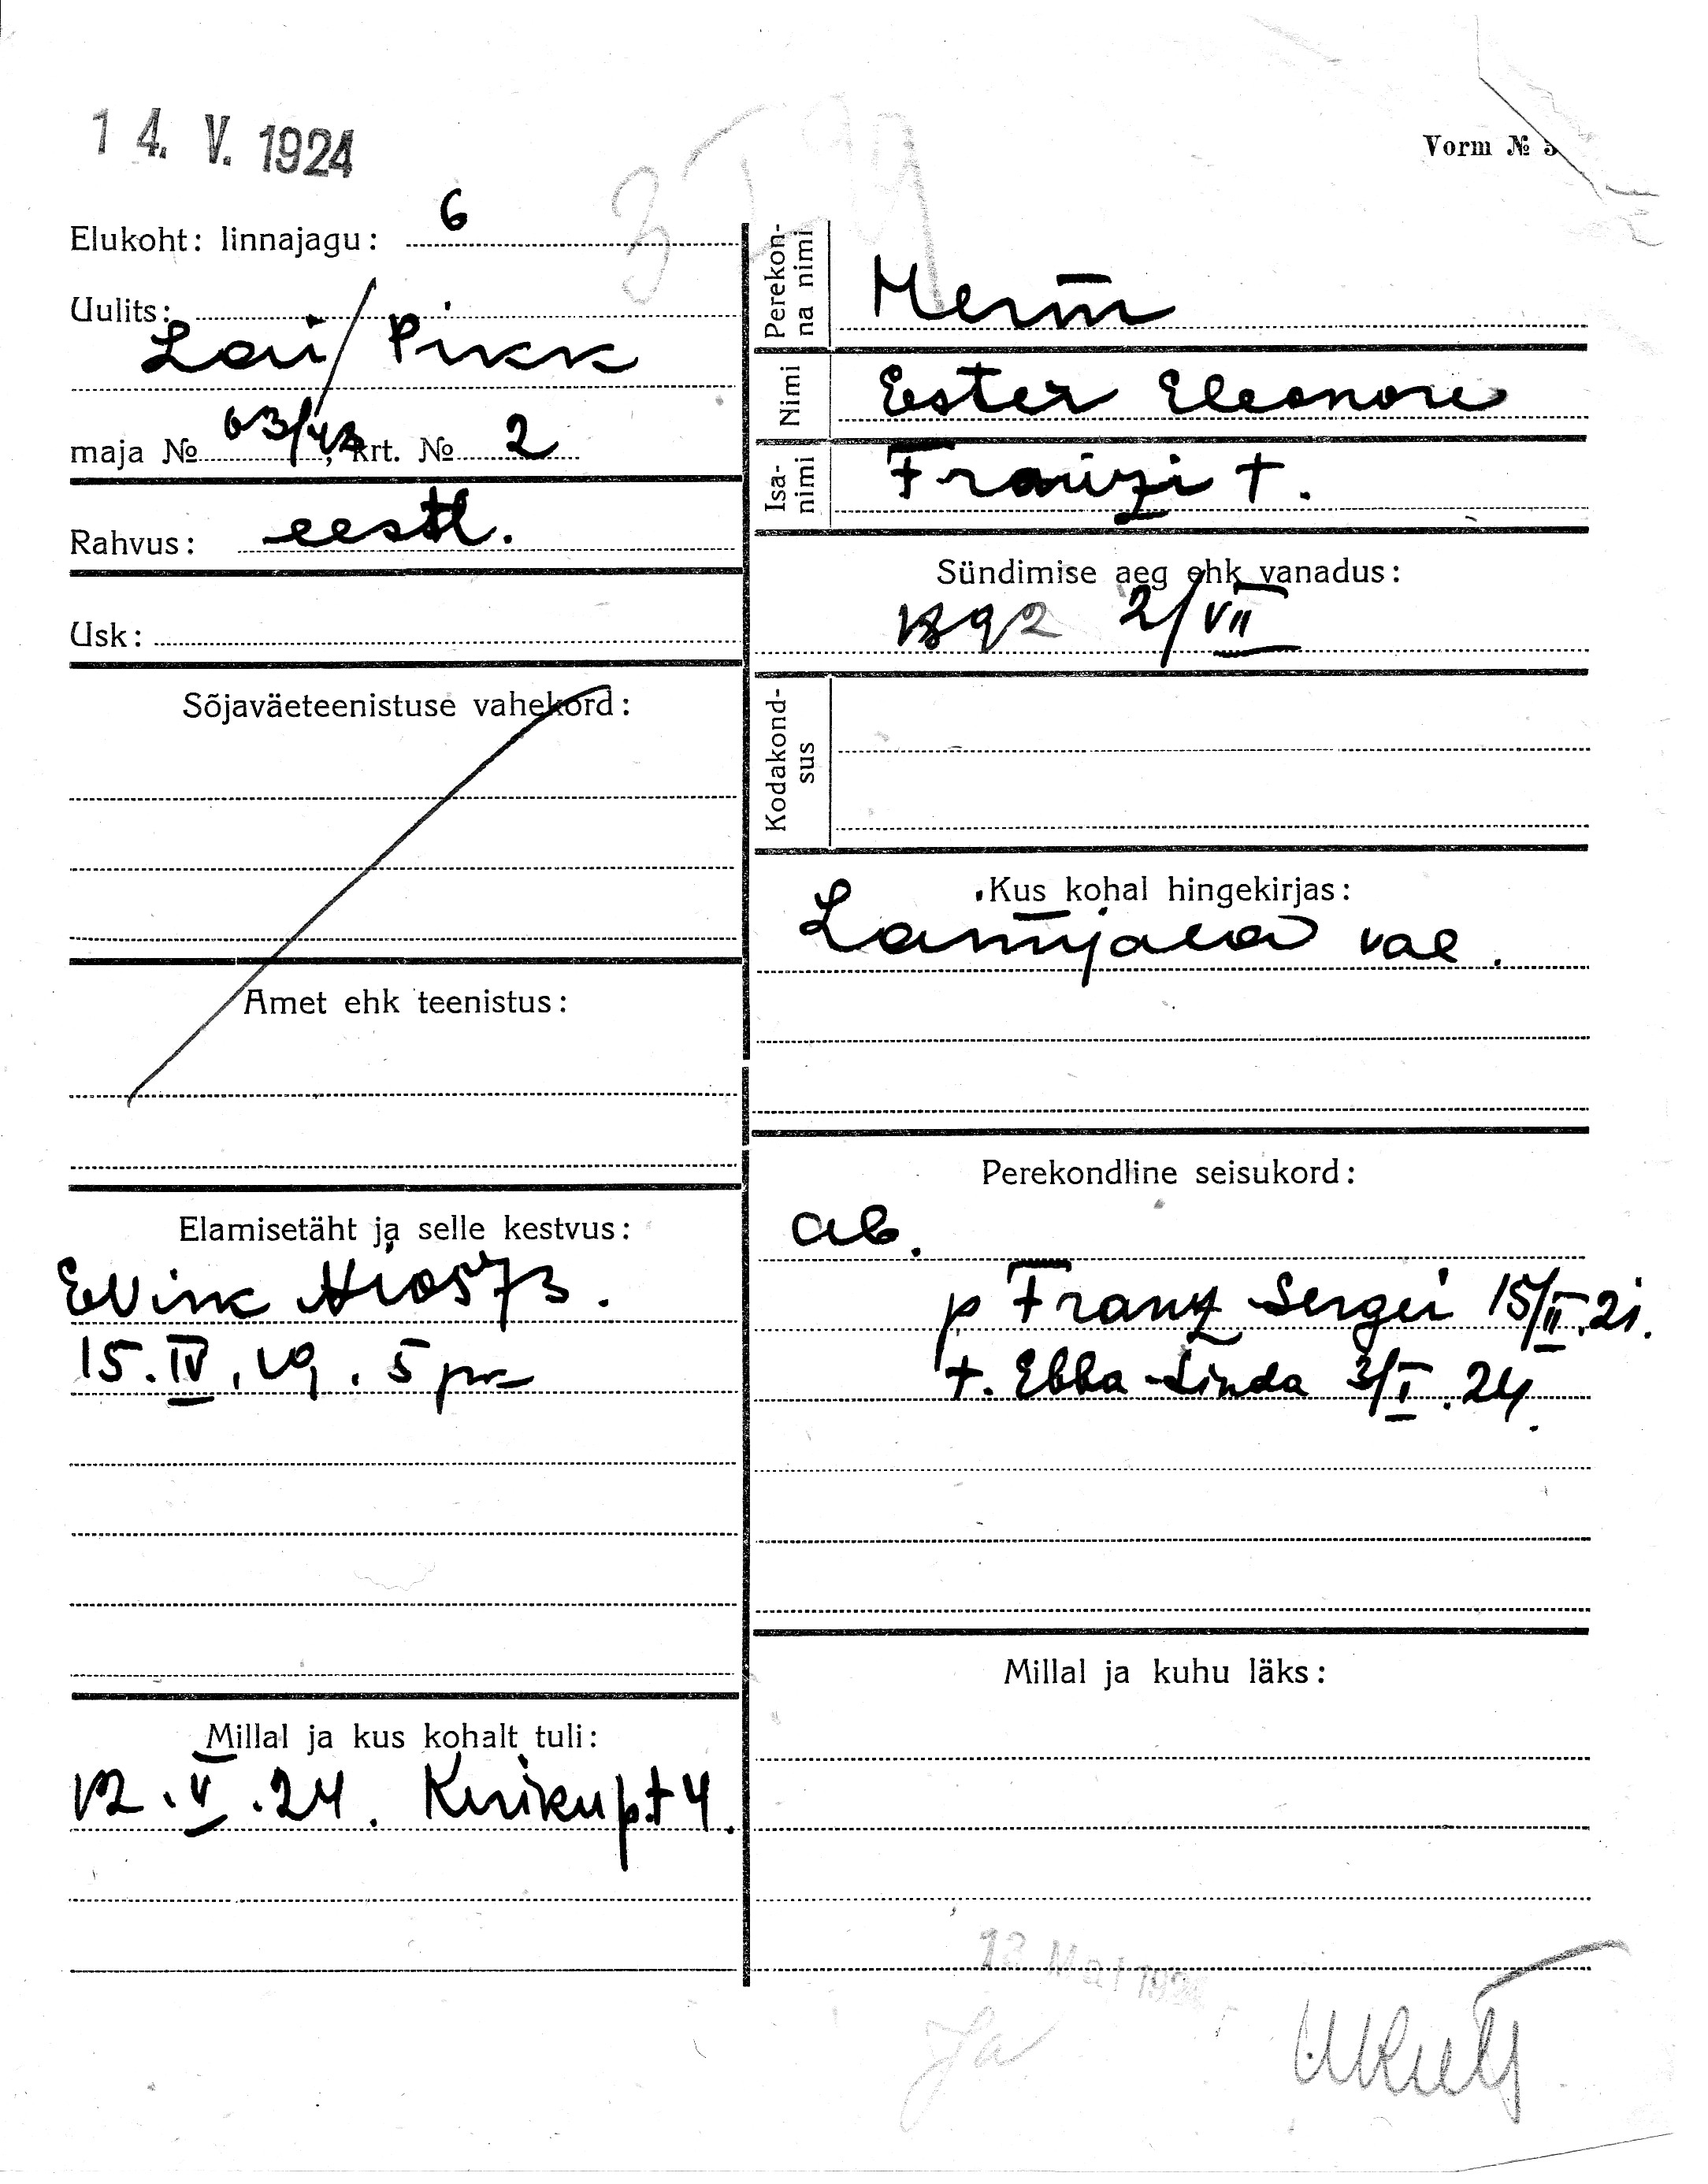 14. V. 1924
Vorm №
Elukoht: linnajagu: 6
Uulits:
Lai / Pikk
maja № 63/43, krt. № 2
Rahvus: eestl.
Usk:
Sõjaväeteenistuse vahekord:
Amet ehk teenistus:
Elamisetäht ja selle kestvus:
15. IV. 19. 5 prk
Millal ja kus kohalt tuli:
12. V. 24. Kiriku pl 4.
Perekonna nimi
Nimi Ester Eleonore
Isanimi Franzi t.
Sündimise aeg ehk vanadus:
1892 2/VII
Kodakondsus
Kus kohal hingekirjas:
val.
Perekondline seisukord:
ab.
p Franz Sergei 15/II. 21.
t. Ebba-Linda 3/I. 24.
Millal ja kuhu läks:
Mai 1924
Ja